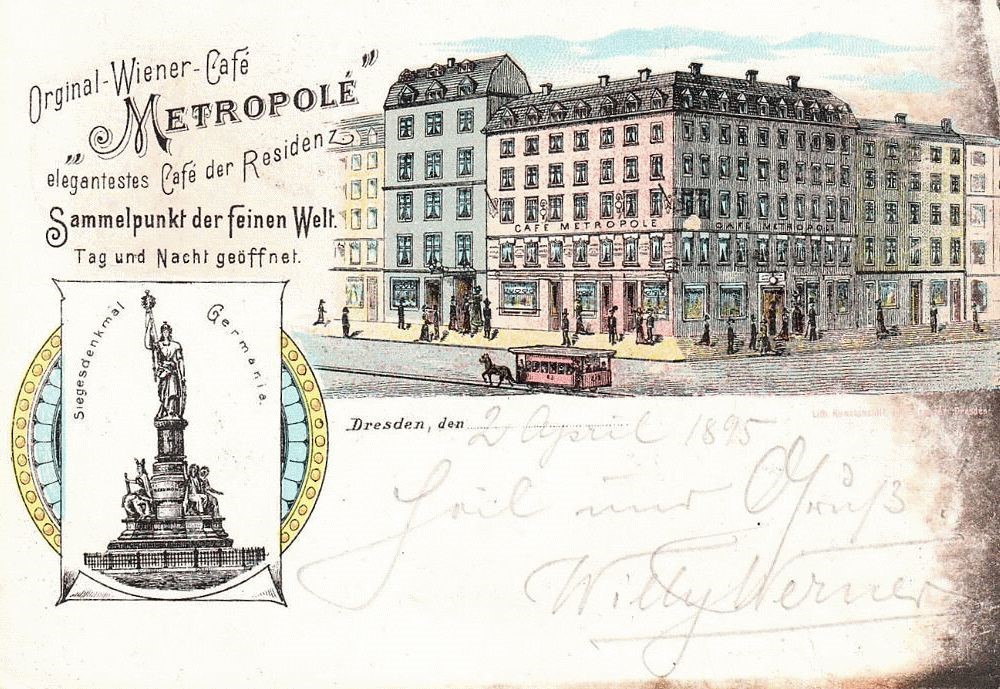 Orginal-Wiener-Café
"METROPOLÉ"
elegantestes Café der Residenz
Sammelpunkt der feinen Welt.
Tag und Nacht geöffnet.
CAFÉ METROPOLE
CAFÉ METROPOLE
Siegesdenkmal Germania.
Dresden, den 2 April 1895
Heil und Gruß!
Willy Werner
Lith. Dresden.